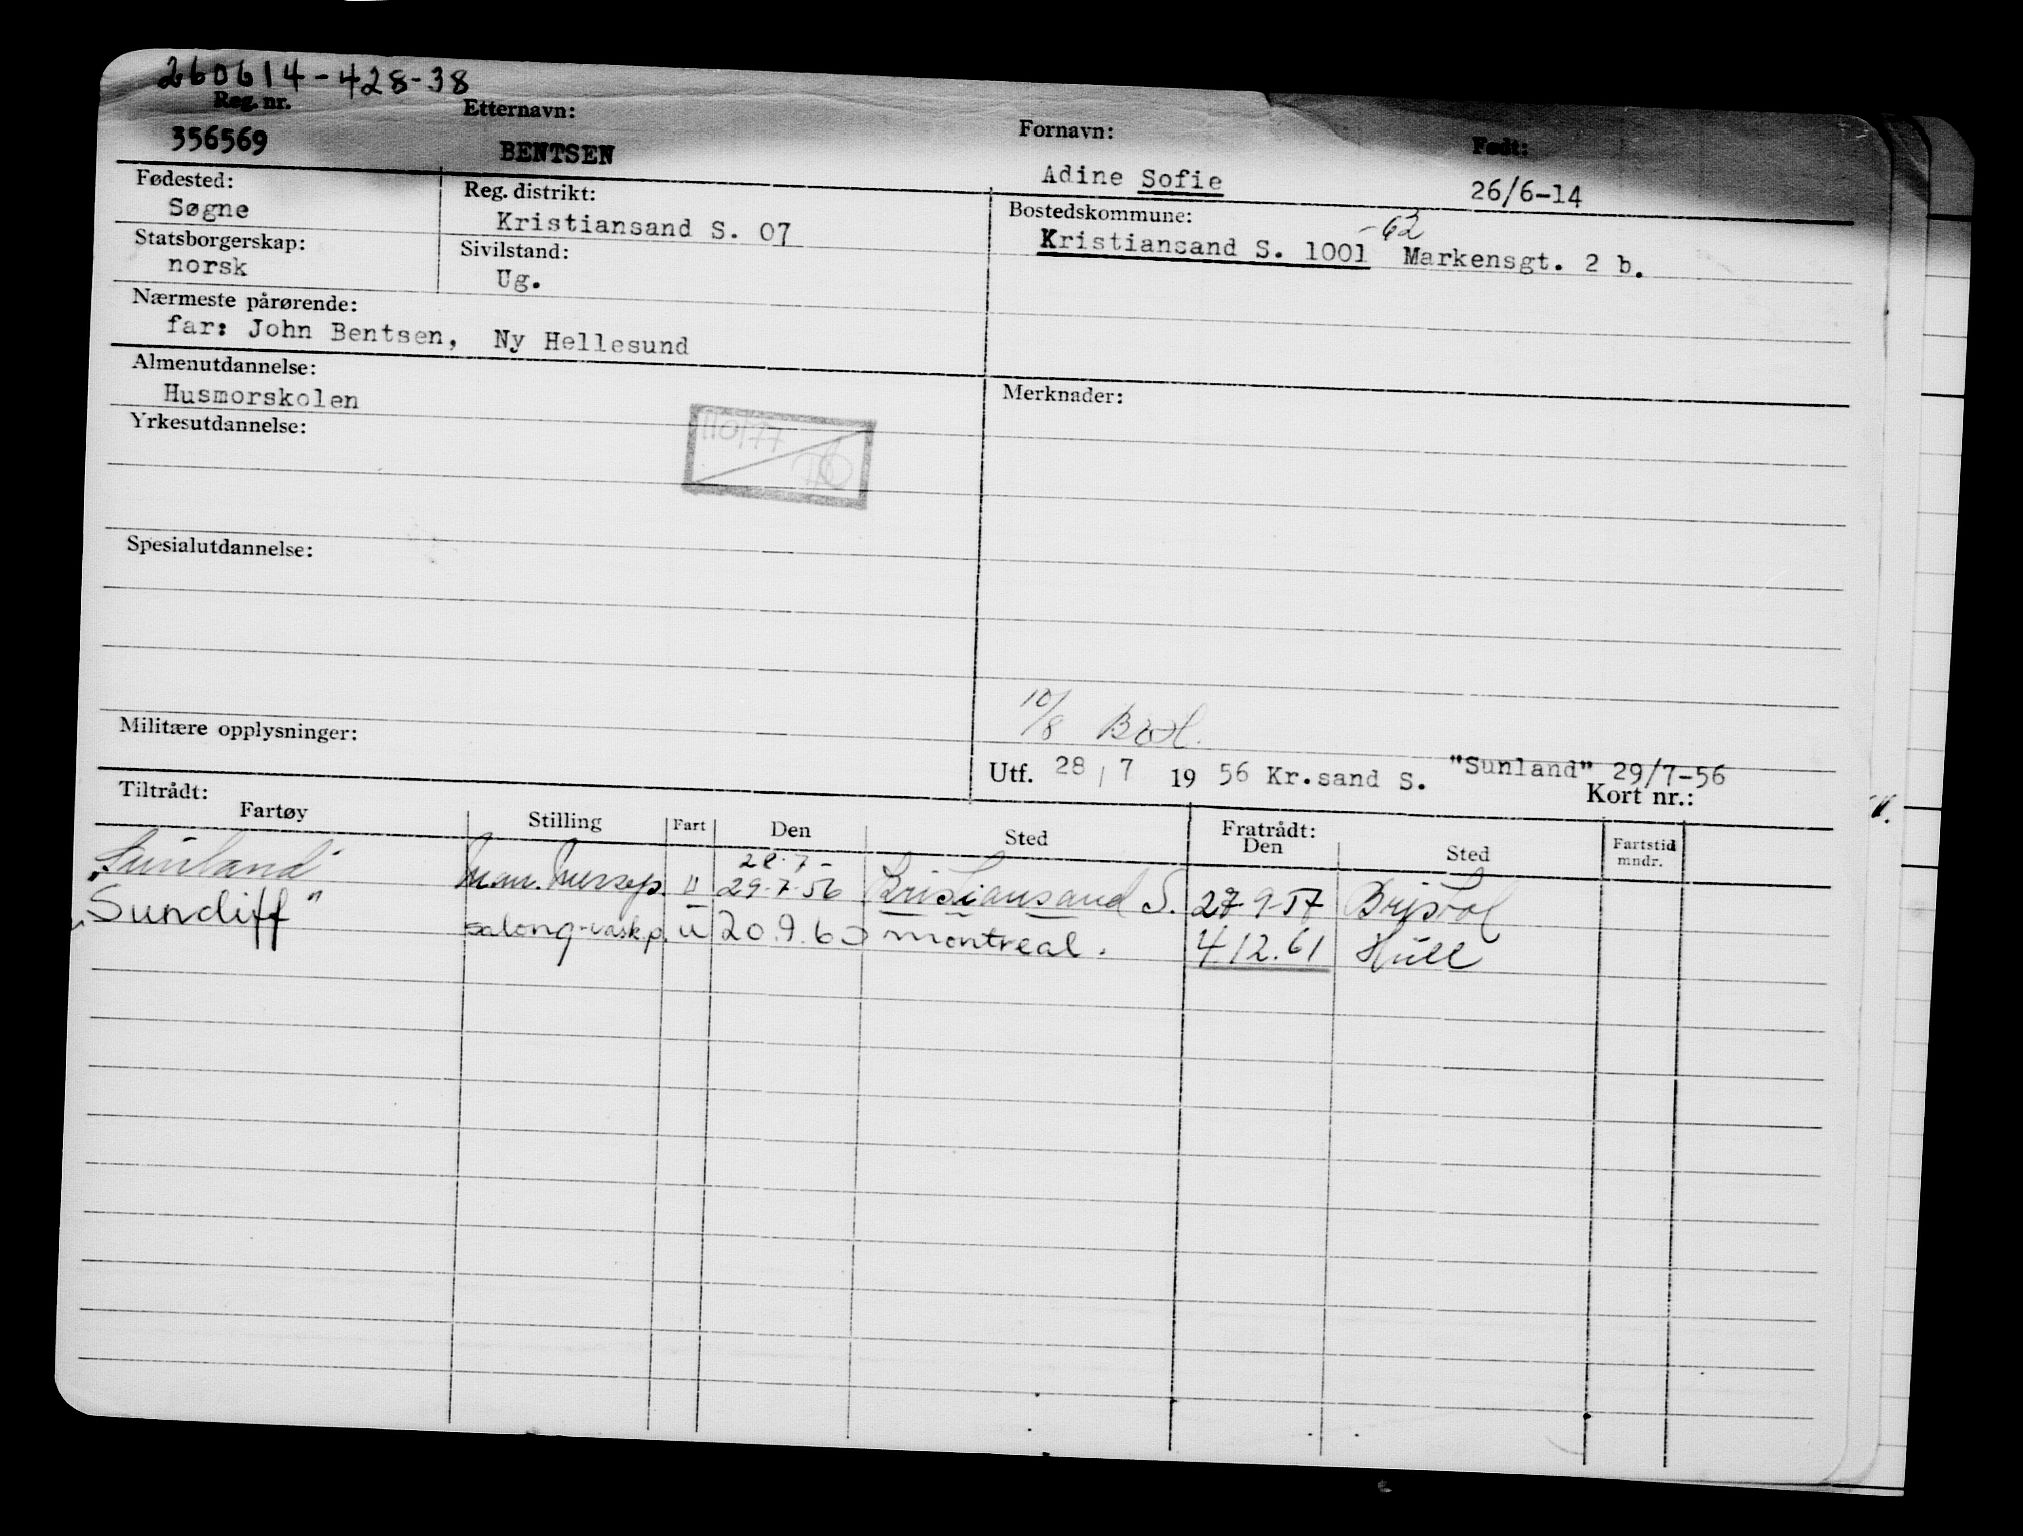 260614-428-38
Reg. nr. Etternavn: Fornavn: Født:
356569 BENTSEN Adine Sofie 26/6-14
Fødested: Reg. distrikt: Bostedskommune:
Søgne Kristiansand S. 07 Kristiansand S. 1001 -62 Markensgt. 2 b.
Statsborgerskap: Sivilstand:
norsk Ug.
Nærmeste pårørende:
far: John Bentsen, Ny Hellesund
Almenutdannelse: Merknader:
Husmorskolen
Yrkesutdannelse:
Spesialutdannelse:
10/8
Militære opplysninger:
Utf. 28 / 7 19 56 Kr.sand S. "Sunland" 29/7-56
Kort nr.:
Tiltrådt: Fratrådt:
Fartøy Stilling Fart Den Sted Den Sted Fartstid mndr.
28.7-
"Sunland" u 29.7.56 Kristiansand S. 9-57 Bristol
"Suncliff" salong-vaskp. u 20.9.60 montreal. 4.12.61 Hull